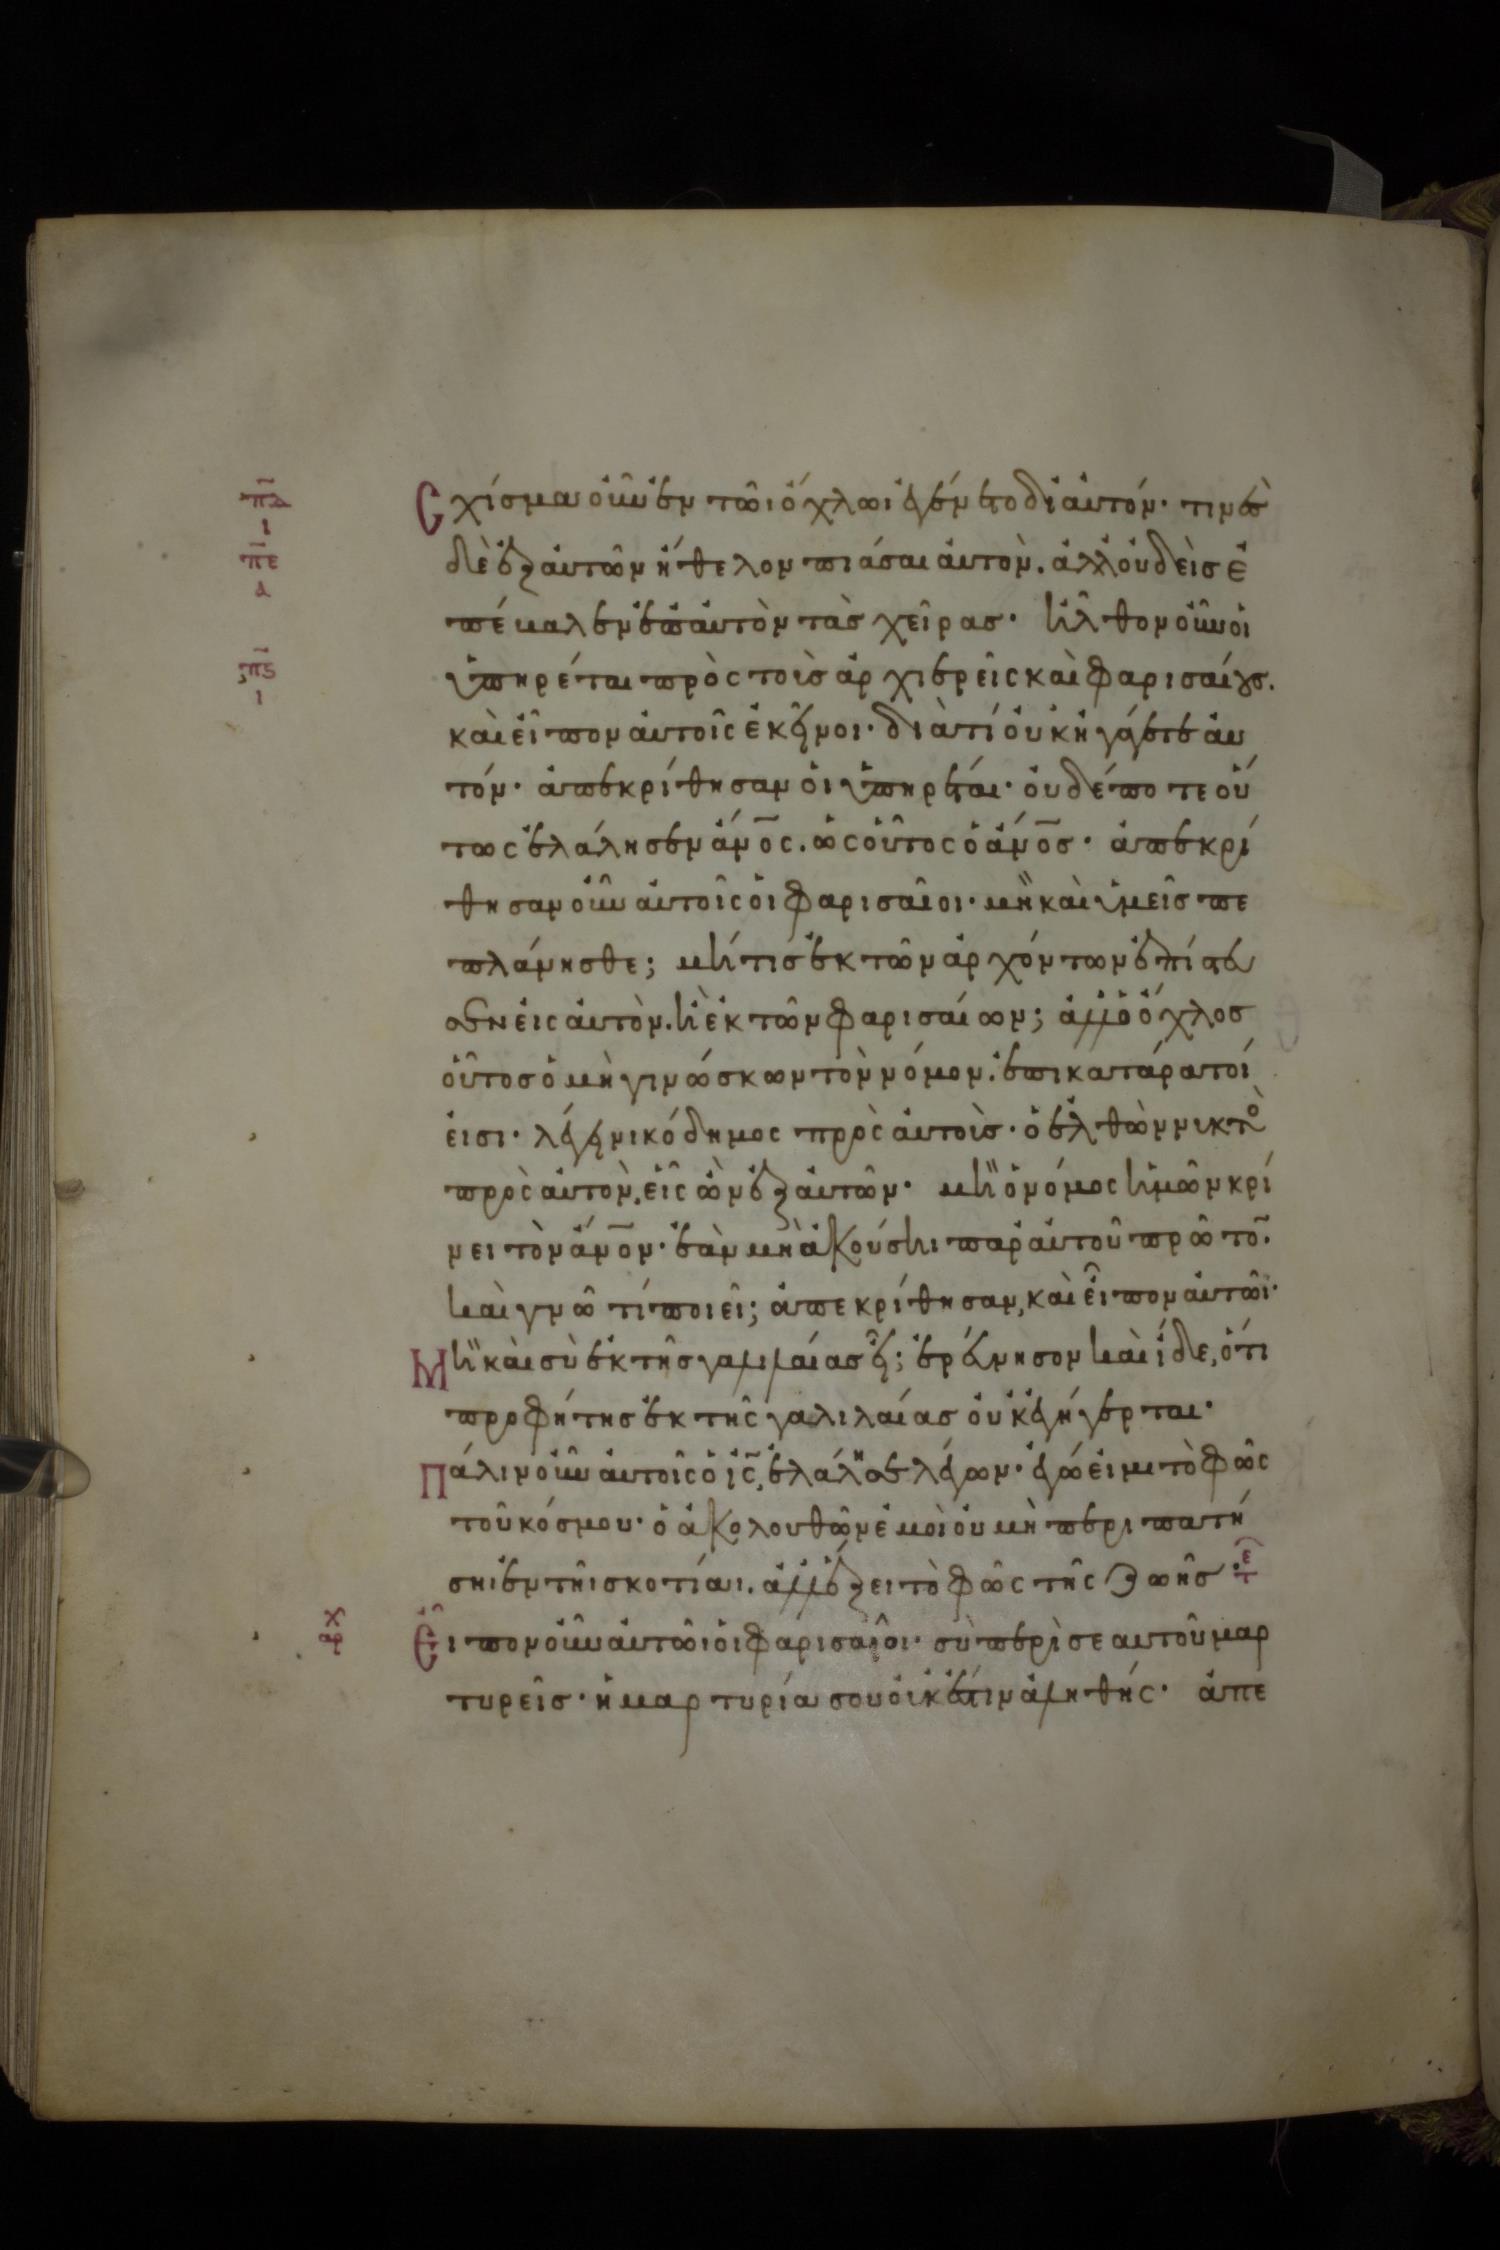 πδ
ι
Σχίσμα οὖν ἐν τῶι ὄχλωι ἐγένετο δι αὐτόν· τινὲς
πε
α
δὲ ἐξ αὐτῶν ἤθελον πιάσαι αὐτὸν. ἀλλ οὐδεὶς ἐ
πέβαλεν ἐπ αὐτὸν τὰς χεῖρας· ἦλθον οὖν οἱ
πς
ι
ὑπηρέται πρὸς τοὺς ἀρχιερεῖς καὶ φαρισαίους.
καὶ εἶπον αὐτοῖς ἐκεῖνοι· διὰ τί οὐκ ἠγάγετε αὐ
τόν· ἀπεκρίθησαν οἱ ὑπηρέται· οὐδέποτε οὕ
τως ἐλάλησεν ἄνος. ὡς οὗτος ὁ ἄνος· ἀπεκρί
θησαν οὖν αὐτοῖς οἱ φαρισαῖοι· μὴ καὶ ὑμεῖς πε
πλάνησθε; μήτις ἐκ τῶν ἀρχόντων ἐπίστευ
σεν εἰς αὐτὸν. ἢ ἐκ τῶν φαρισαίων; ἀλλ ὁ ὄχλος
οὗτος ὁ μὴ γινώσκων τὸν νόμον. ἐπικατάρατοί
εἰσι· λέγει νικόδημος πρὸς αὐτοὺς· ὁ ἐλθὼν νυκτὸ
πρὸς αὐτὸν, εἷς ὢν ἐξ αὐτῶν· μὴ ὁ νόμος ἡμῶν κρί
νει τὸν ἄνον· ἐὰν μὴ ἀκούσηι παρ αὐτοῦ πρῶτο̅.
καὶ γνῶ τί ποιεῖ; ἀπεκρίθησαν, καὶ εἶπον αὐτῶι·
Μὴ καὶ σὺ ἐκ τῆς γαλιλαίας εἶ; ἐρεύνησον καὶ ἴδε, ὅτι
προφήτης ἐκ τῆς γαλιλαίας οὐκ ἐγήγερται·
Πάλιν οὖν αὐτοῖς ὁ ις, ἐλάλησε λέγων· ἐγώ εἰμι τὸ φῶς
τοῦ κόσμου· ὁ ἀκολουθῶν ἐμοὶ οὐ μὴ περιπατή
σηι ἐν τῆι σκοτίαι. ἀλλ ἕξει τὸ φῶς τῆς ζωῆς· τε
χ
αρ
Εἶπον οὖν αὐτῶι οἱ φαρισαῖοι· σὺ περὶ σεαυτοῦ μαρ
τυρεῖς· ἡ μαρτυρία σου οὐκ ἔστιν ἀληθής· ἀπε